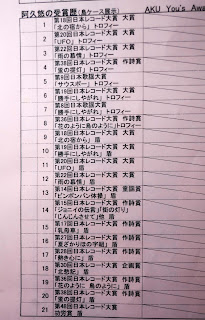 阿久悠の受賞歴(島ケース展示) AKU You's Awa
1 第18回日本レコード大賞 大賞
「北の宿から」トロフィー
2 第20回日本レコード大賞 大賞
「UFO」トロフィー
3 第22回日本レコード大賞 大賞
「雨の慕情」トロフィー
4 第38回日本レコード大賞 作詩賞
「蛍の提灯」トロフィー
5 第9回日本歌謡大賞
「サウスポー」トロフィー
6 第19回日本レコード大賞 大賞
「勝手にしやがれ」トロフィー
7 第8回日本歌謡大賞
「勝手にしやがれ」トロフィー
8 第36回日本レコード大賞 作詩賞
「花のように鳥のように」トロフィー
9 第18回日本レコード大賞 大賞
「北の宿から」盾
10 第19回日本レコード大賞 大賞
「勝手にしやがれ」盾
11 第20回日本レコード大賞 大賞
「UFO」盾
12 第22回日本レコード大賞 大賞
「雨の慕情」盾
13 第14回日本レコード賞 童謡賞
「ピンポンパン体操」盾
14 第15回日本レコード大賞 作詩賞
「ジョニイの伝言」「街の灯り」
「じんじんさせて」他 盾
15 第17回日本レコード大賞 作詩賞
「乳母車」盾
16 第27回日本レコード大賞 作詩賞
「夏ざかりほの字組」盾
17 第28回日本レコード大賞 作詩賞
「熱き心に」盾
18 第30回日本レコード大賞 企画賞
「悲歌紀」盾
19 第36回日本レコード大賞 作詩賞
「花のように 鳥のように」盾
20 第38回日本レコード大賞 作詩賞
「蛍の提灯」盾
21 第40回日本レコード大賞
功労賞 盾